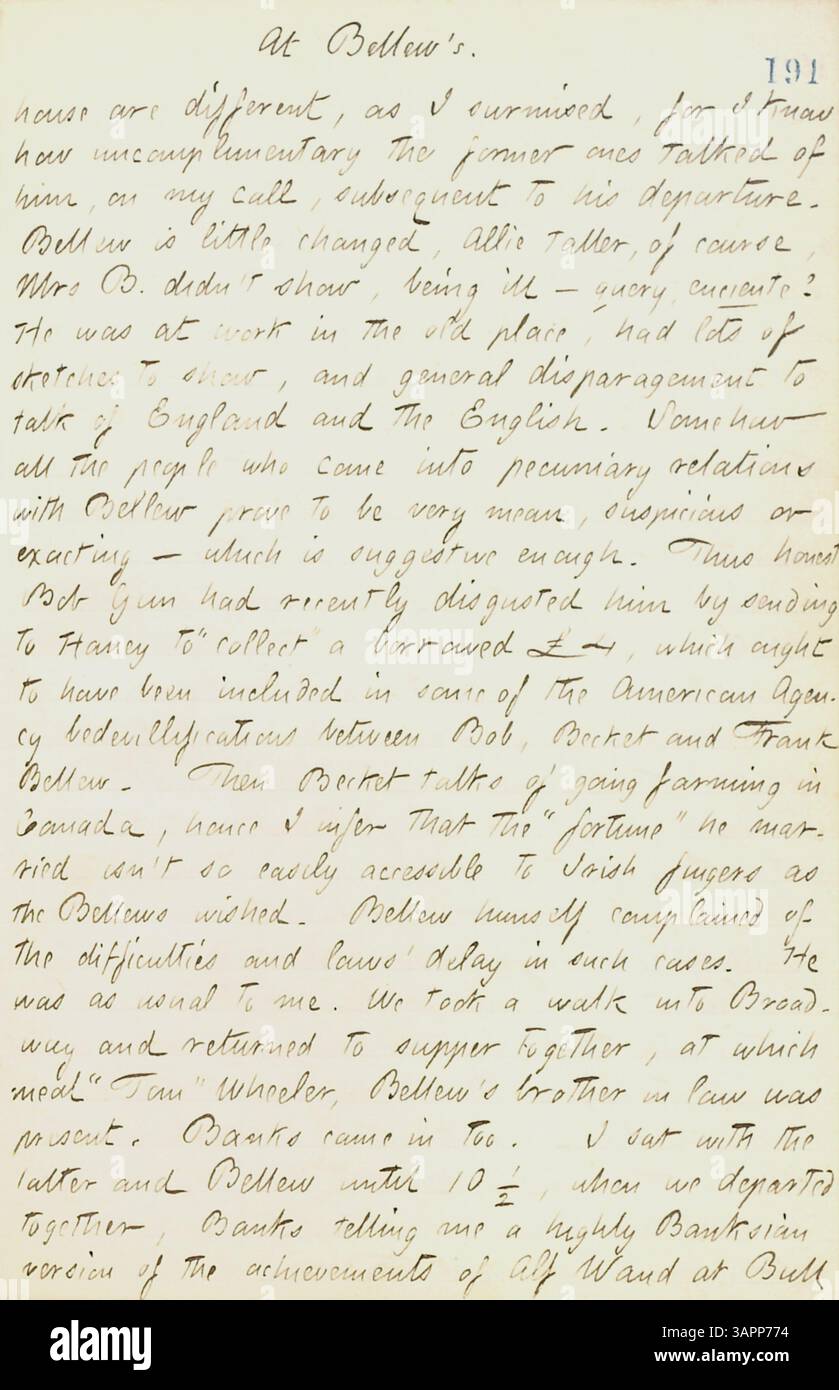 At Bellew's.
191
house are different, as I surmised, for I know
how uncomplimentary the former ones talked of
him, on my call, subsequent to his departure.
Bellew is little changed, Allie taller, of course,
Mrs B. didn't show, being ill — query, enciente?
He was at work in the old place, had lots of
sketches to show, and general disparagement to
talk of England and the English. Somehow
all the people who come into pecuniary relations
with Bellew prove to be very mean, suspicious or
exacting — which is suggestive enough. Thus honest
Bob Gun had recently disgusted him by sending
to Haney to "collect" a borrowed £4, which ought
to have been included in some of the American Agen-
cy bedevillifications between Bob, Becket and Frank
Bellew. Then Becket talks of going farming in
Canada, hence I infer that the "fortune" he mar-
ried isn't so easily accessible to Irish fingers as
the Bellews wished. Bellew himself complained of
the difficulties and laws' delay in such cases. He
was as usual to me. We took a walk into Broad-
way and returned to supper together, at which
meal "Tom" Wheeler, Bellew's brother in law was
present. Banks came in too. I sat with the
latter and Bellew until 10 ½, when we departed
together, Banks telling me a highly Banksian
version of the achievements of Alf Waud at Bull
alamy
Image ID: 3APP774
www.alamy.com